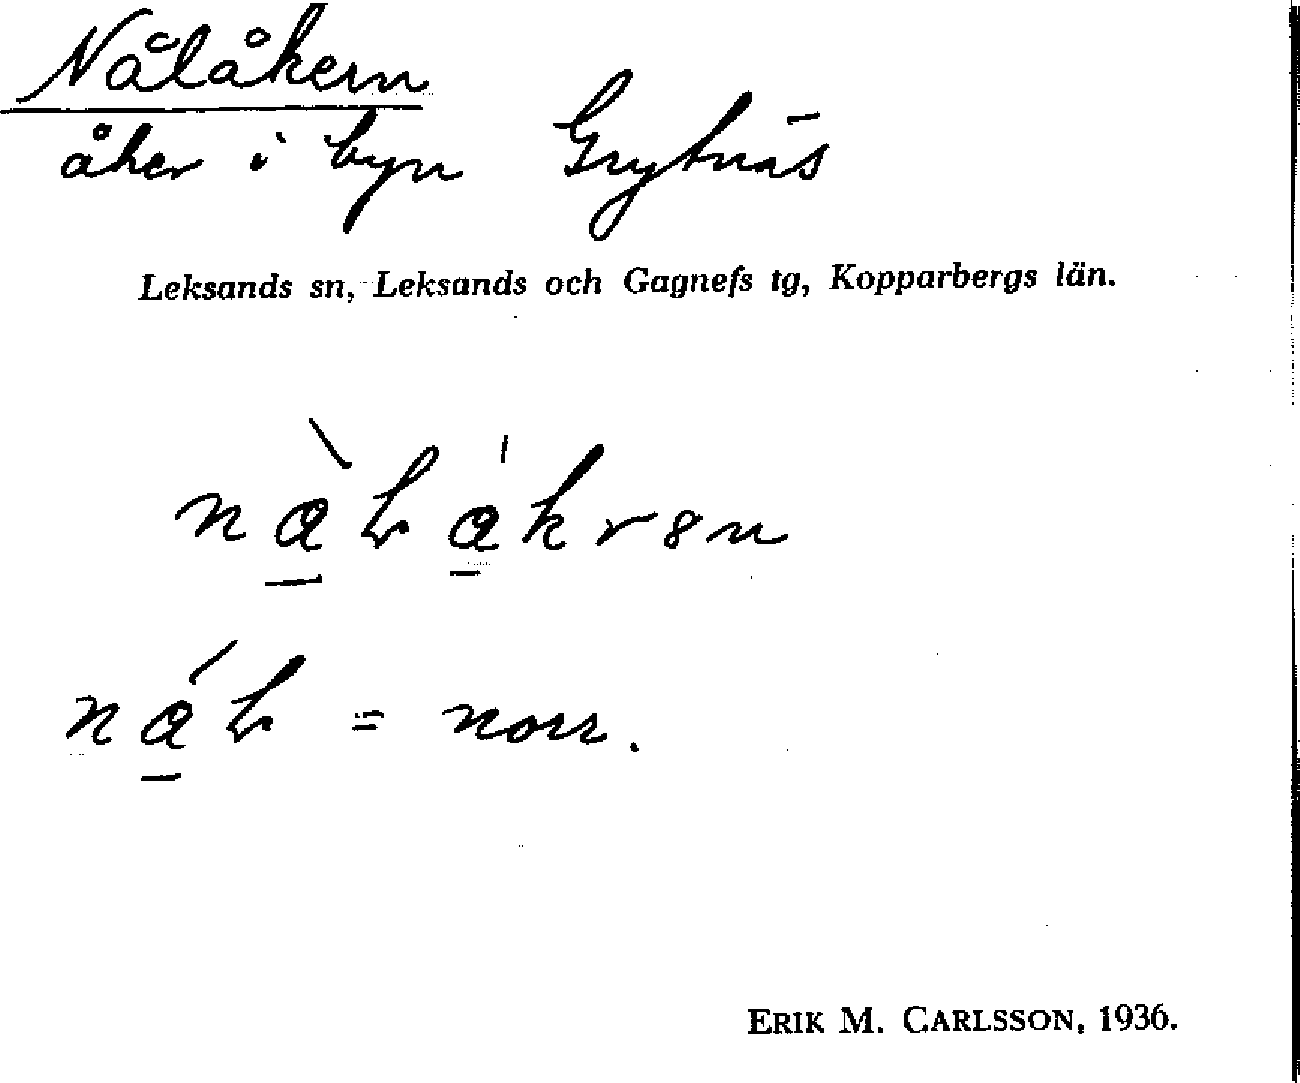 Nålåkern
åker i byn Grytnäs
Leksands sn, Leksands och Gagnefs tg, Kopparbergs län.
= norr.
ERIK M. CARLSSON, 1936.